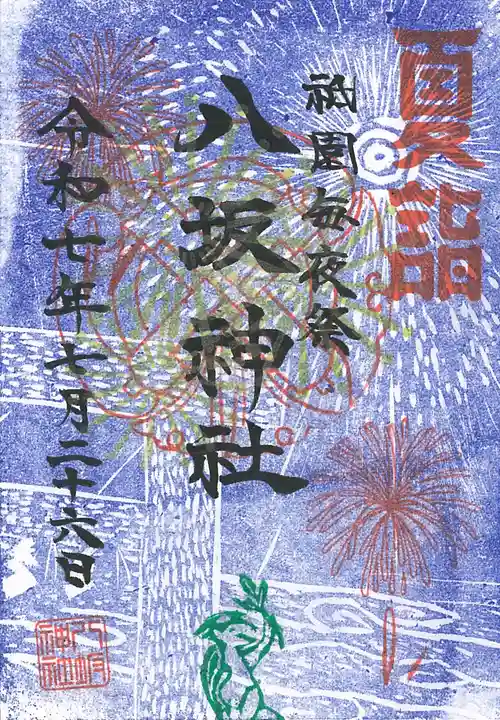 夏詣
祇園毎夜祭
八坂神社
令和七年七月二十六日